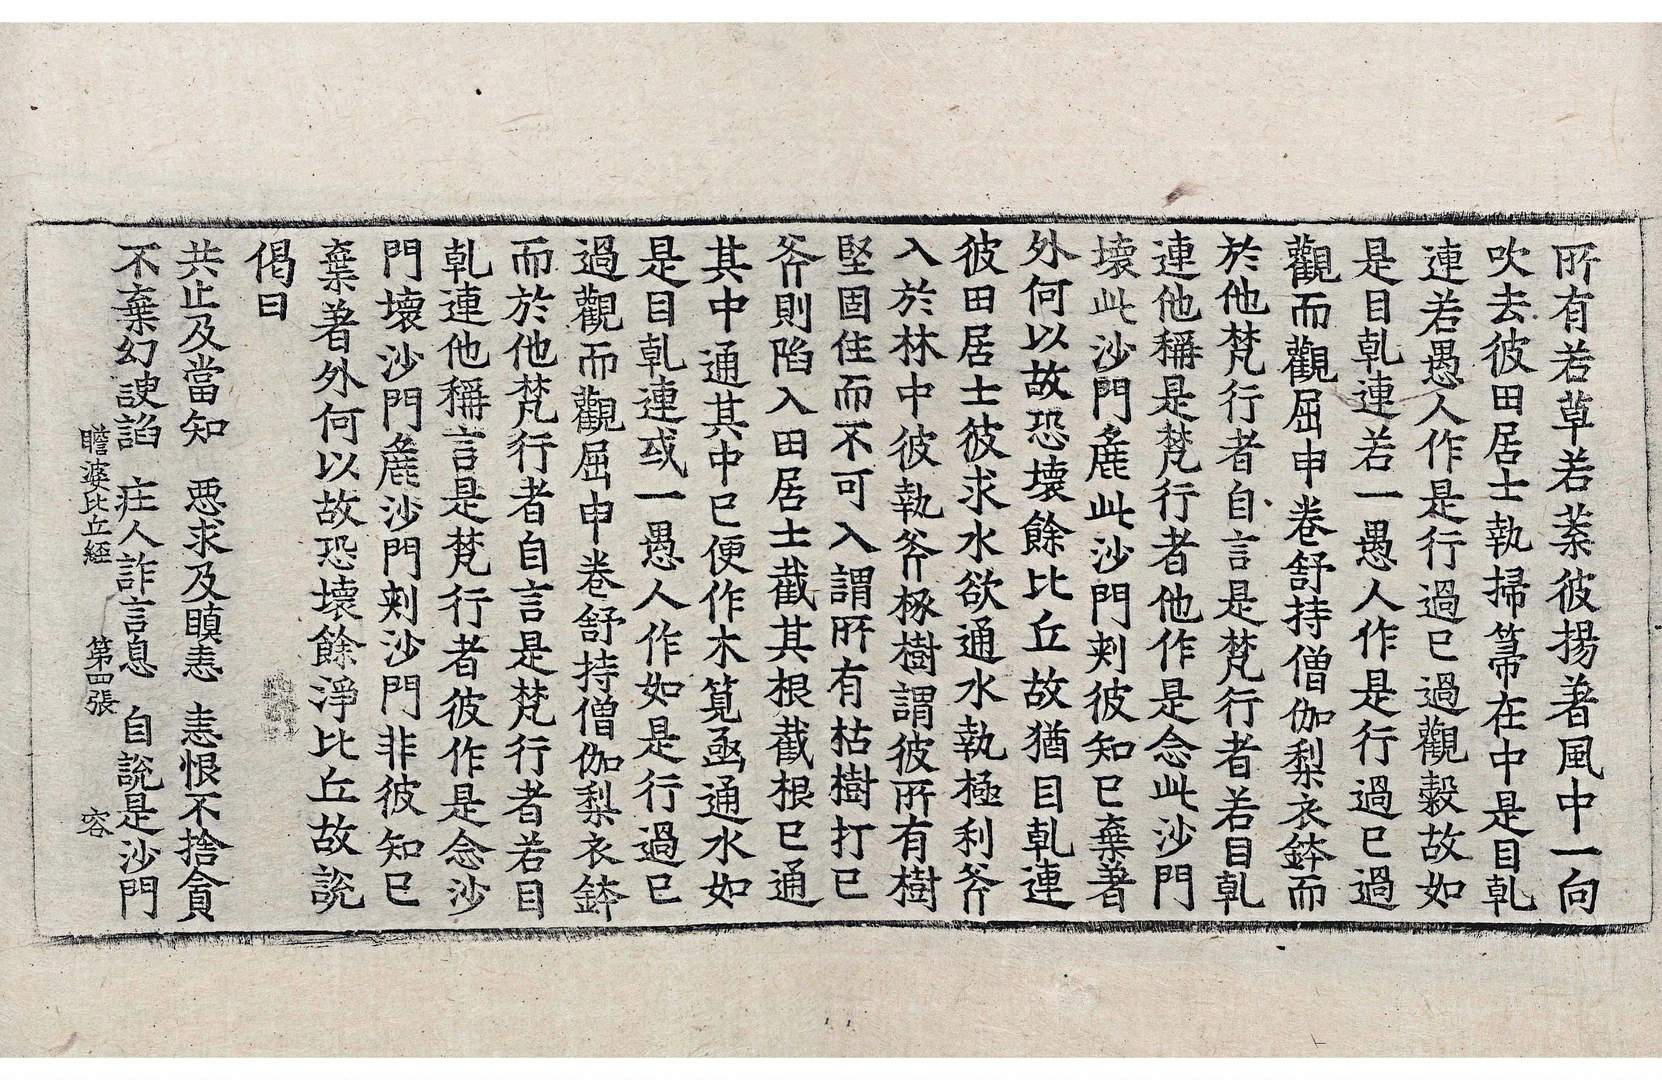 所有若草若䒱彼揚著風中一向
吹去彼田居士執掃箒在中是目乹
連若愚人作是行過已過觀穀故如
是目乹連若一愚人作是行過已過
觀而觀屈申卷舒持僧伽梨衣鉢而
於他梵行者自言是梵行者若目乹
連他稱是梵行者他作是念此沙門
壞此沙門麁此沙門刾彼知已棄著
外何以故恐壞餘比丘故猶目乹連
彼田居士彼求水欲通水執極利斧
入於林中彼執斧椓樹謂彼所有樹
堅固住而不可入謂所有枯樹打已
斧則陷入田居士截其根截根已通
其中通其中已便作木筧函通水如
是目乹連或一愚人作如是行過已
過觀而觀屈申卷舒持僧伽梨衣鉢
而於他梵行者自言是梵行者若目
乹連他稱言是梵行者彼作是念沙
門壞沙門麁沙門刾沙門非彼知已
棄著外何以故恐壞餘淨比丘故說
偈曰
共止及當知 惡求及瞋恚 恚恨不捨貪
不棄幻諛諂 疘人詐言息 自說是沙門
瞻婆比丘經 第四張 容